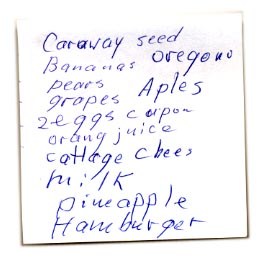 Caraway seed
Bananas oregono
pears Aples
grapes
2 eggs cupon
orang juice
cattage chees
milk
pineapple
Hamburger